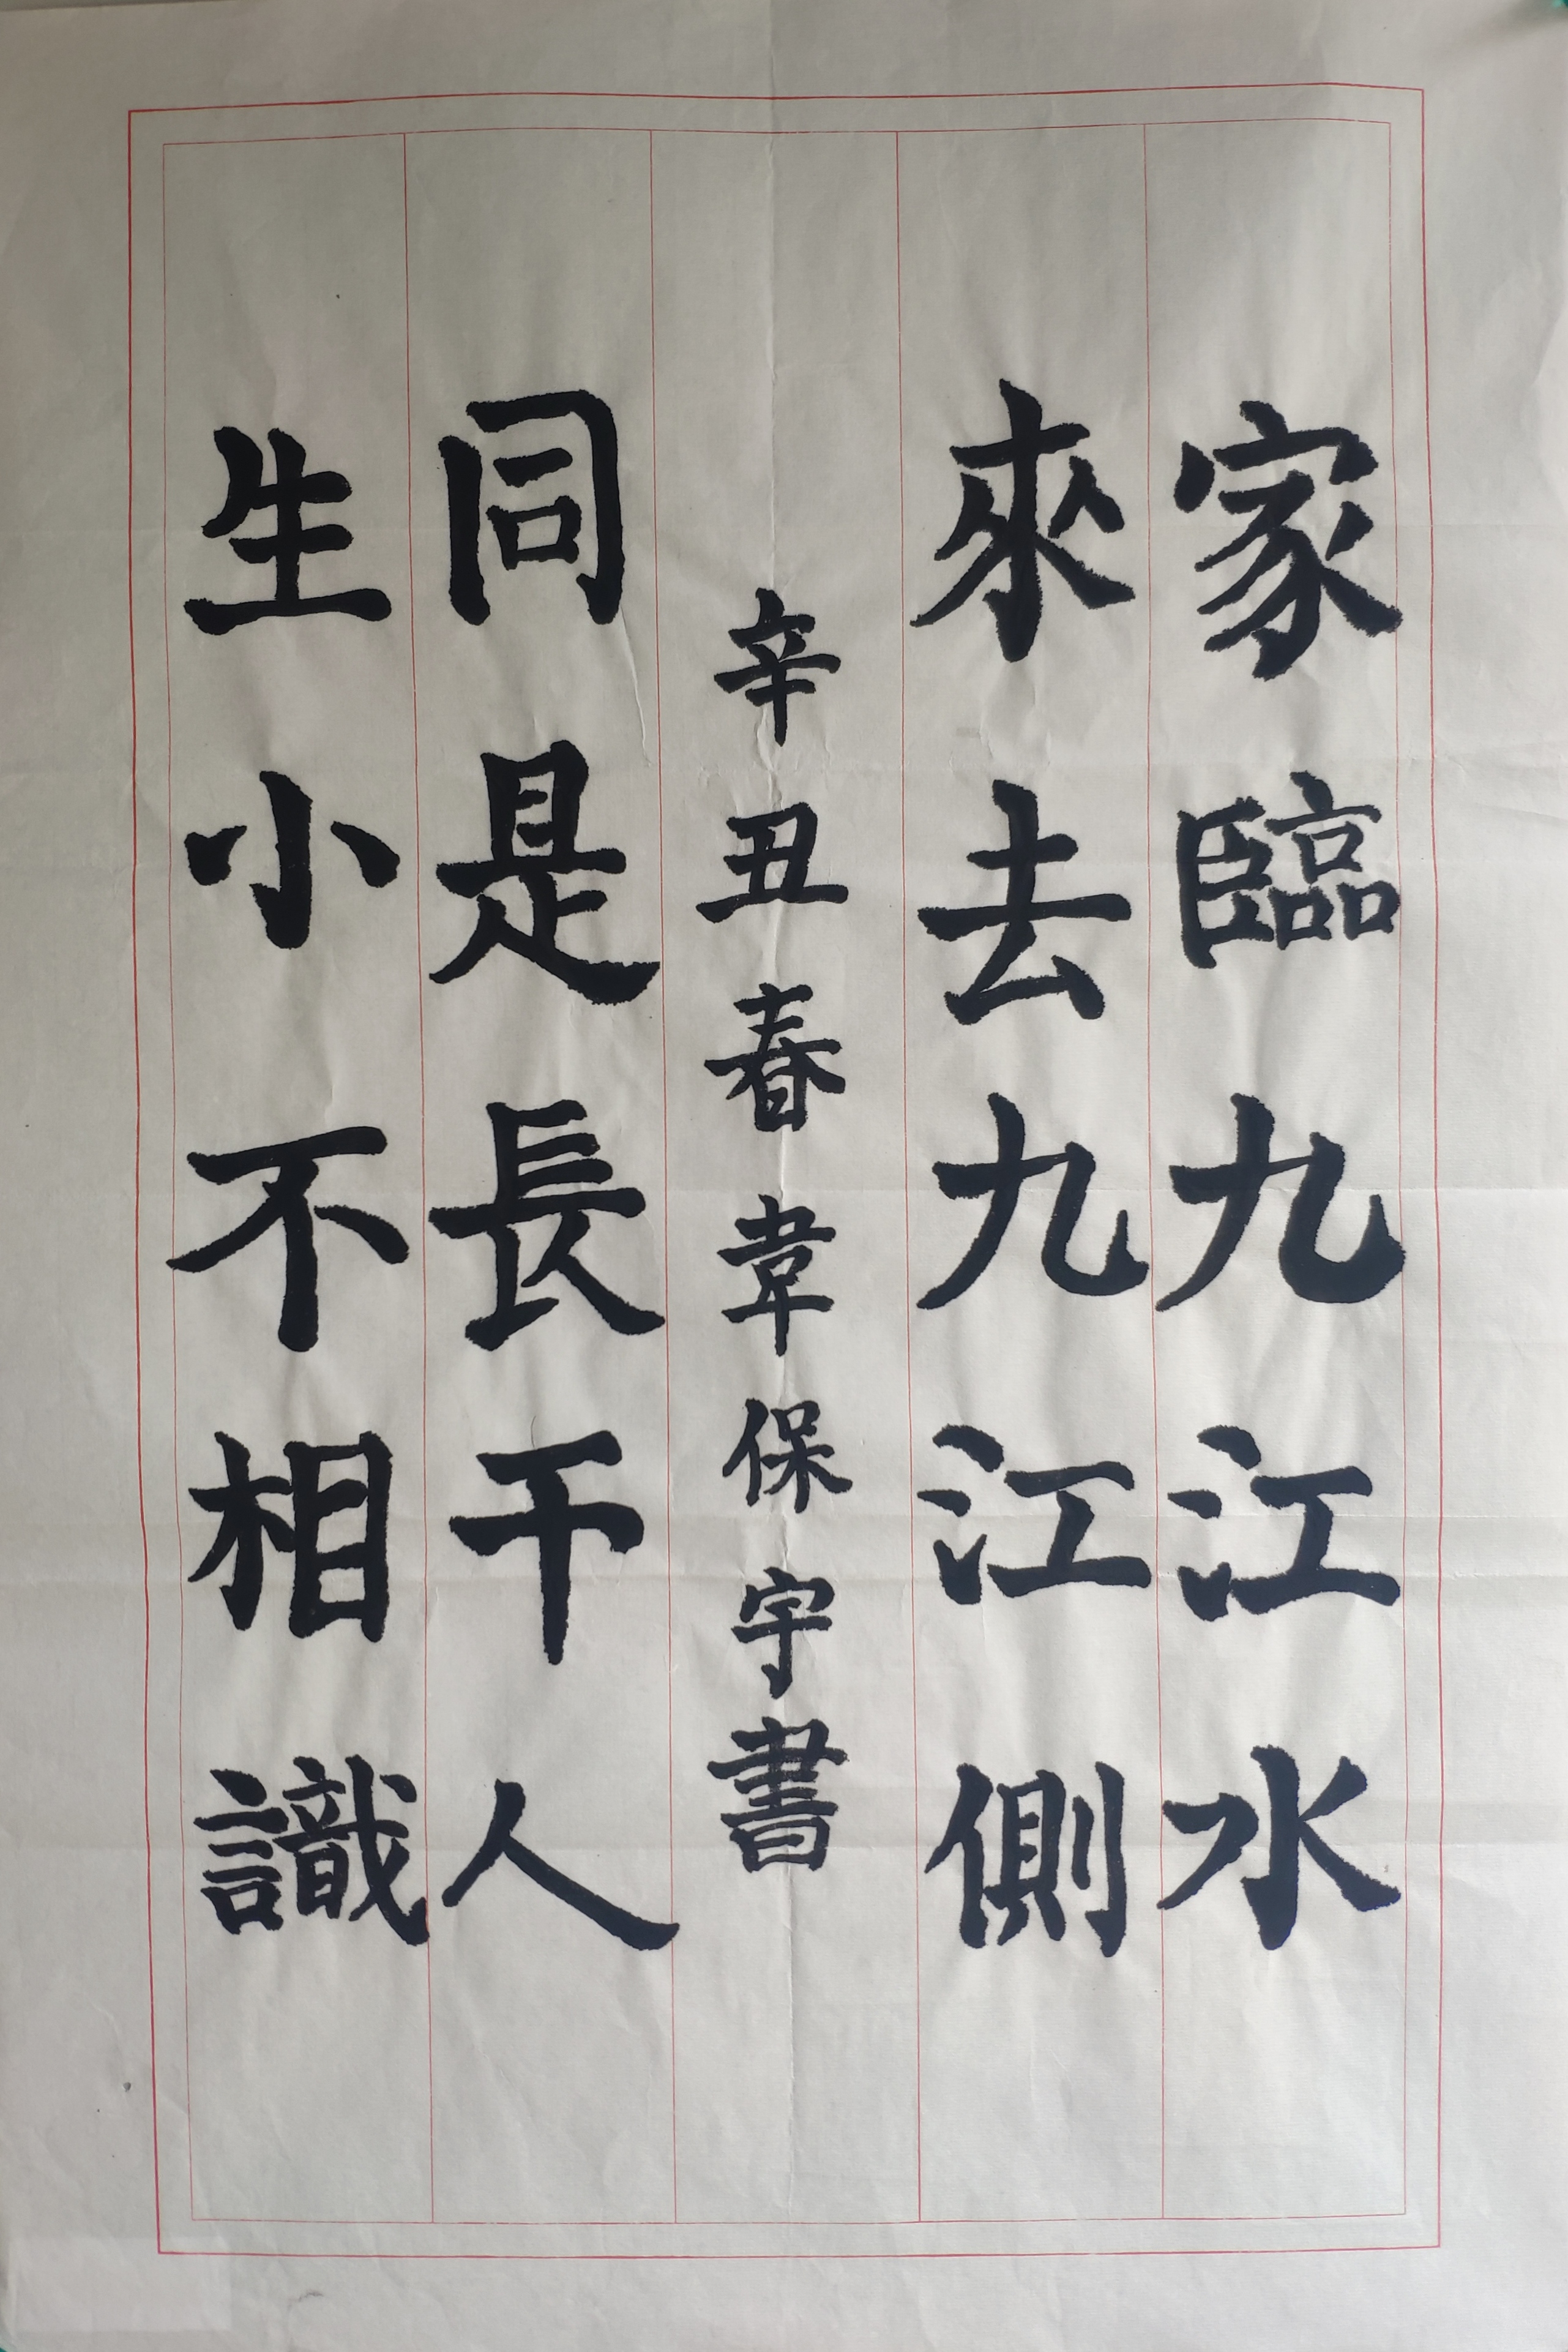 家臨九江水
來去九江側
辛丑春韋保宇書
同是長干人
生小不相識